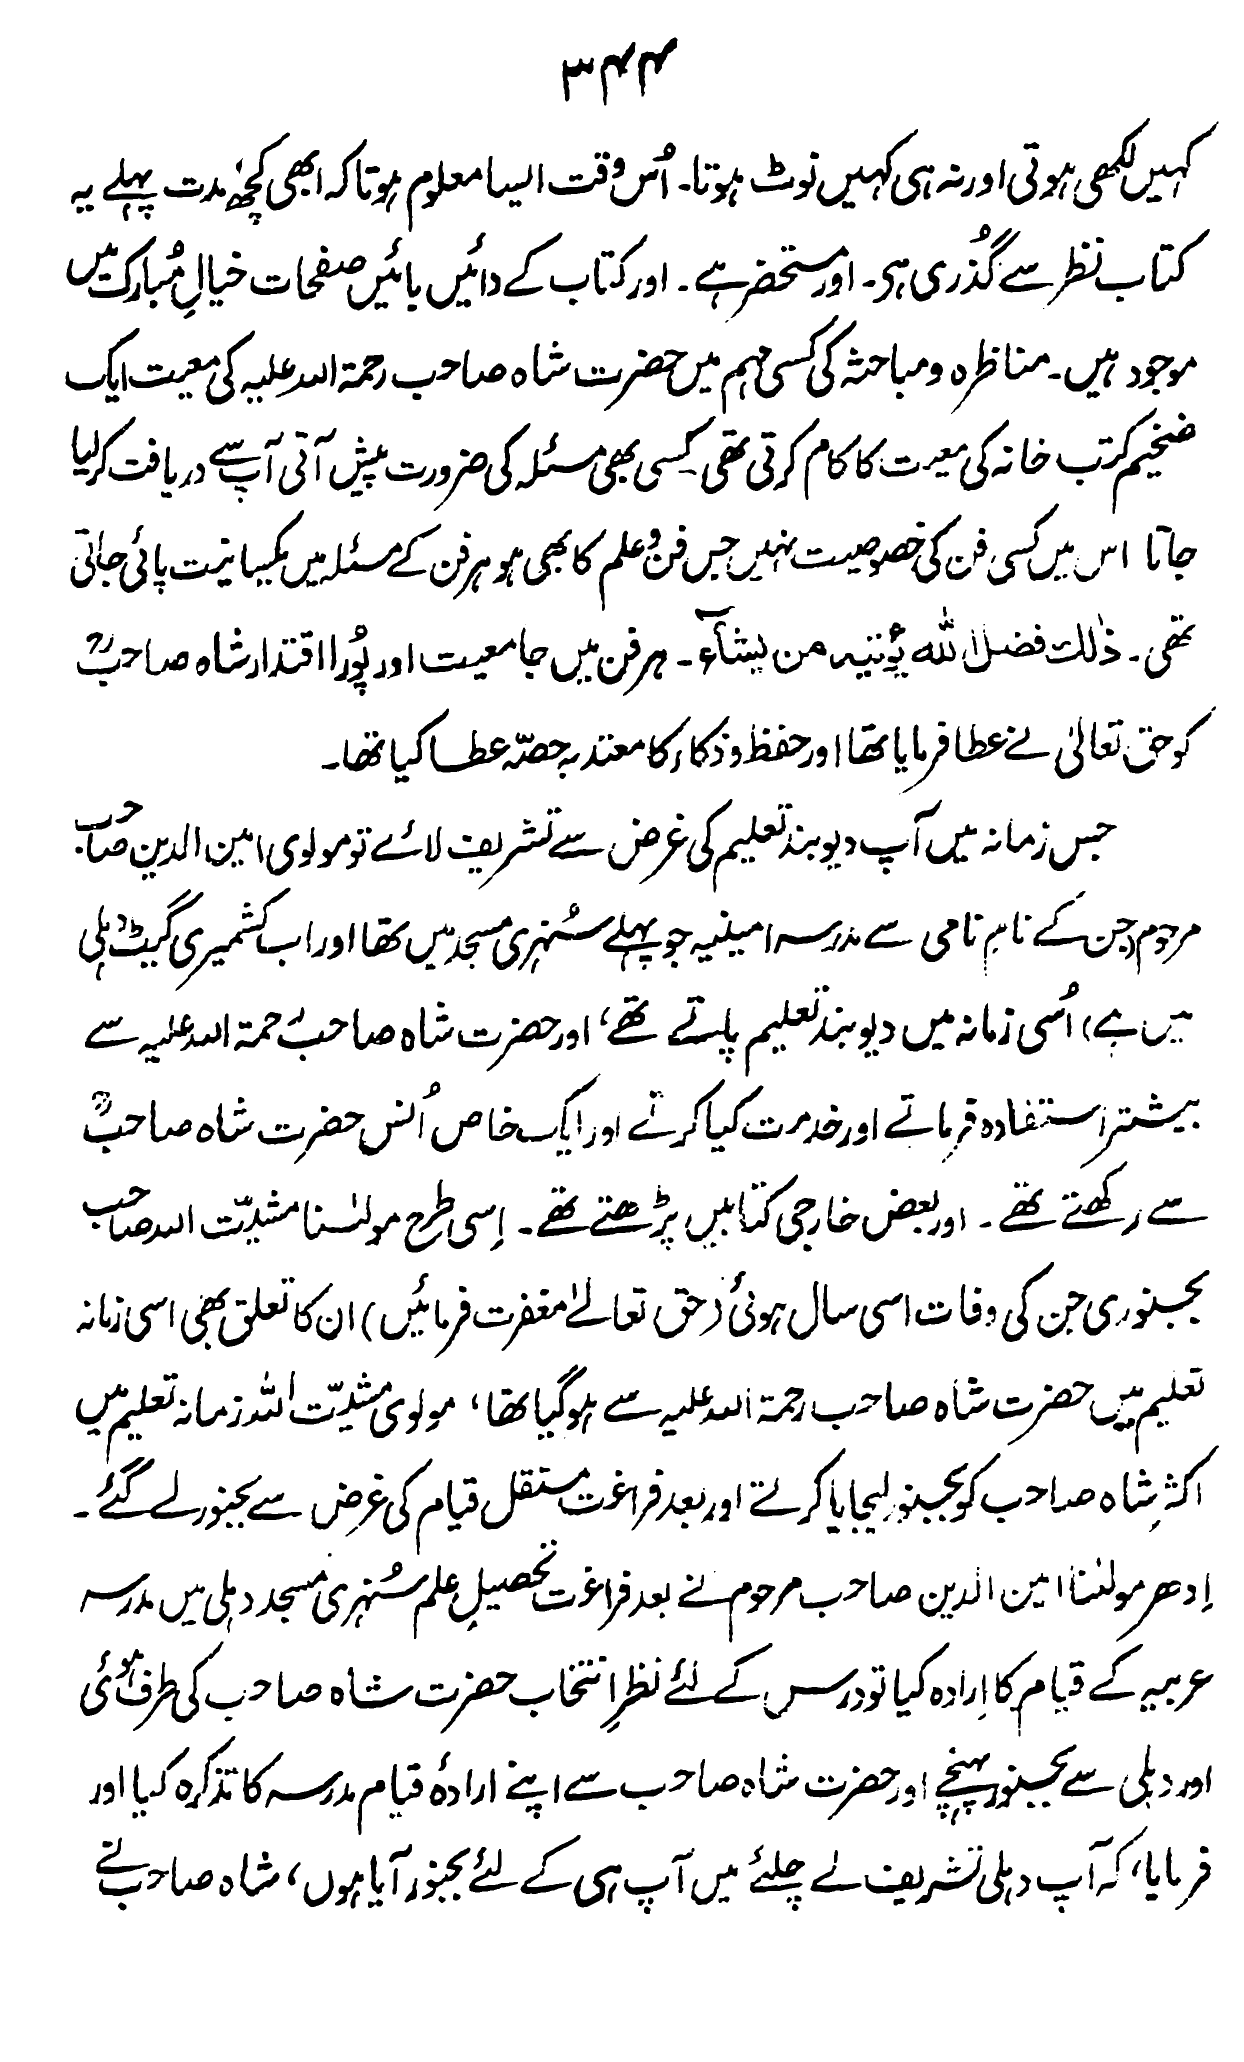 ۳۴۴
کہیں لکھی ہوتی اور نہ ہی کہیں نوٹ ہوتا۔ اُس وقت ایسا معلوم ہوتا کہ ابھی کچھ مدت پہلے یہ
کتاب نظر سے گُذری ہی۔ اور مستحضر ہے۔ اور کتاب کے دائیں بائیں صفحات خیالِ مُبارک میں
موجود ہیں۔ مناظرہ و مباحثہ کی کسی مہم میں حضرت شاہ صاحب رحمۃ اللہ علیہ کی معیت ایک
ضخیم کتب خانہ کی معیت کا کام کرتی تھی۔ کسی بھی مسئلہ کی ضرورت پیش آتی آپ سے دریافت کر لیا
جاتا اس میں کسی فن کی خصوصیت نہیں جس فن و علم کا بھی ہو ہر فن کے مسئلہ میں یکسانیت پائی جاتی
تھی۔ ذٰلک فضل اللہ یؤتیہ من یشآء۔ ہر فن میں جامعیت اور پُورا اقتدار شاہ صاحبؒ
کو حق تعالیٰ نے عطا فرمایا تھا اور حفظ و ذکاء کا معتد بہ حصّہ عطا کیا تھا۔
جس زمانہ میں آپ دیوبند تعلیم کی غرض سے تشریف لائے تو مولوی امین الدین صاحب
مرحوم (جن کے نامِ نامی سے مدرسہ امینیہ جو پہلے سُنہری مسجد میں تھا اور اب کشمیری گیٹ دہلی
میں ہے) اُسی زمانہ میں دیوبند تعلیم پاتے تھے، اور حضرت شاہ صاحب رحمۃ اللہ علیہ سے
بیشتر استفادہ فرماتے اور خدمت کیا کرتے اور ایک خاص اُنس حضرت شاہ صاحبؒ
سے رکھتے تھے۔ اور بعض خارجی کتابیں پڑھتے تھے۔ اِسی طرح مولٰنا مشیّت اللہ صاحب
بجنوری جن کی وفات اسی سال ہوئی (حق تعالےٰ مغفرت فرمائیں) ان کا تعلق بھی اسی زمانہ
تعلیم میں حضرت شاہ صاحب رحمۃ اللہ علیہ سے ہو گیا تھا، مولوی مشیّت اللہ زمانہ تعلیم میں
اکثر شاہ صاحب کو بجنور لیجایا کرتے اور بعد فراغت مستقل قیام کی غرض سے بجنور لے گئے۔
اِدھر مولٰنا امین الدین صاحب مرحوم نے بعد فراغت تحصیلِ علم سُنہری مسجد دہلی میں مدرسہ
عربیہ کے قیام کا اِرادہ کیا تو درس کے لئے نظرِ انتخاب حضرت شاہ صاحب کی طرف ہوئی
اور دہلی سے بجنور پہنچے اور حضرت شاہ صاحب سے اپنے ارادۂ قیام مدرسہ کا تذکرہ کیا اور
فرمایا، کہ آپ دہلی تشریف لے چلئے میں آپ ہی کے لئے بجنور آیا ہوں، شاہ صاحب نے